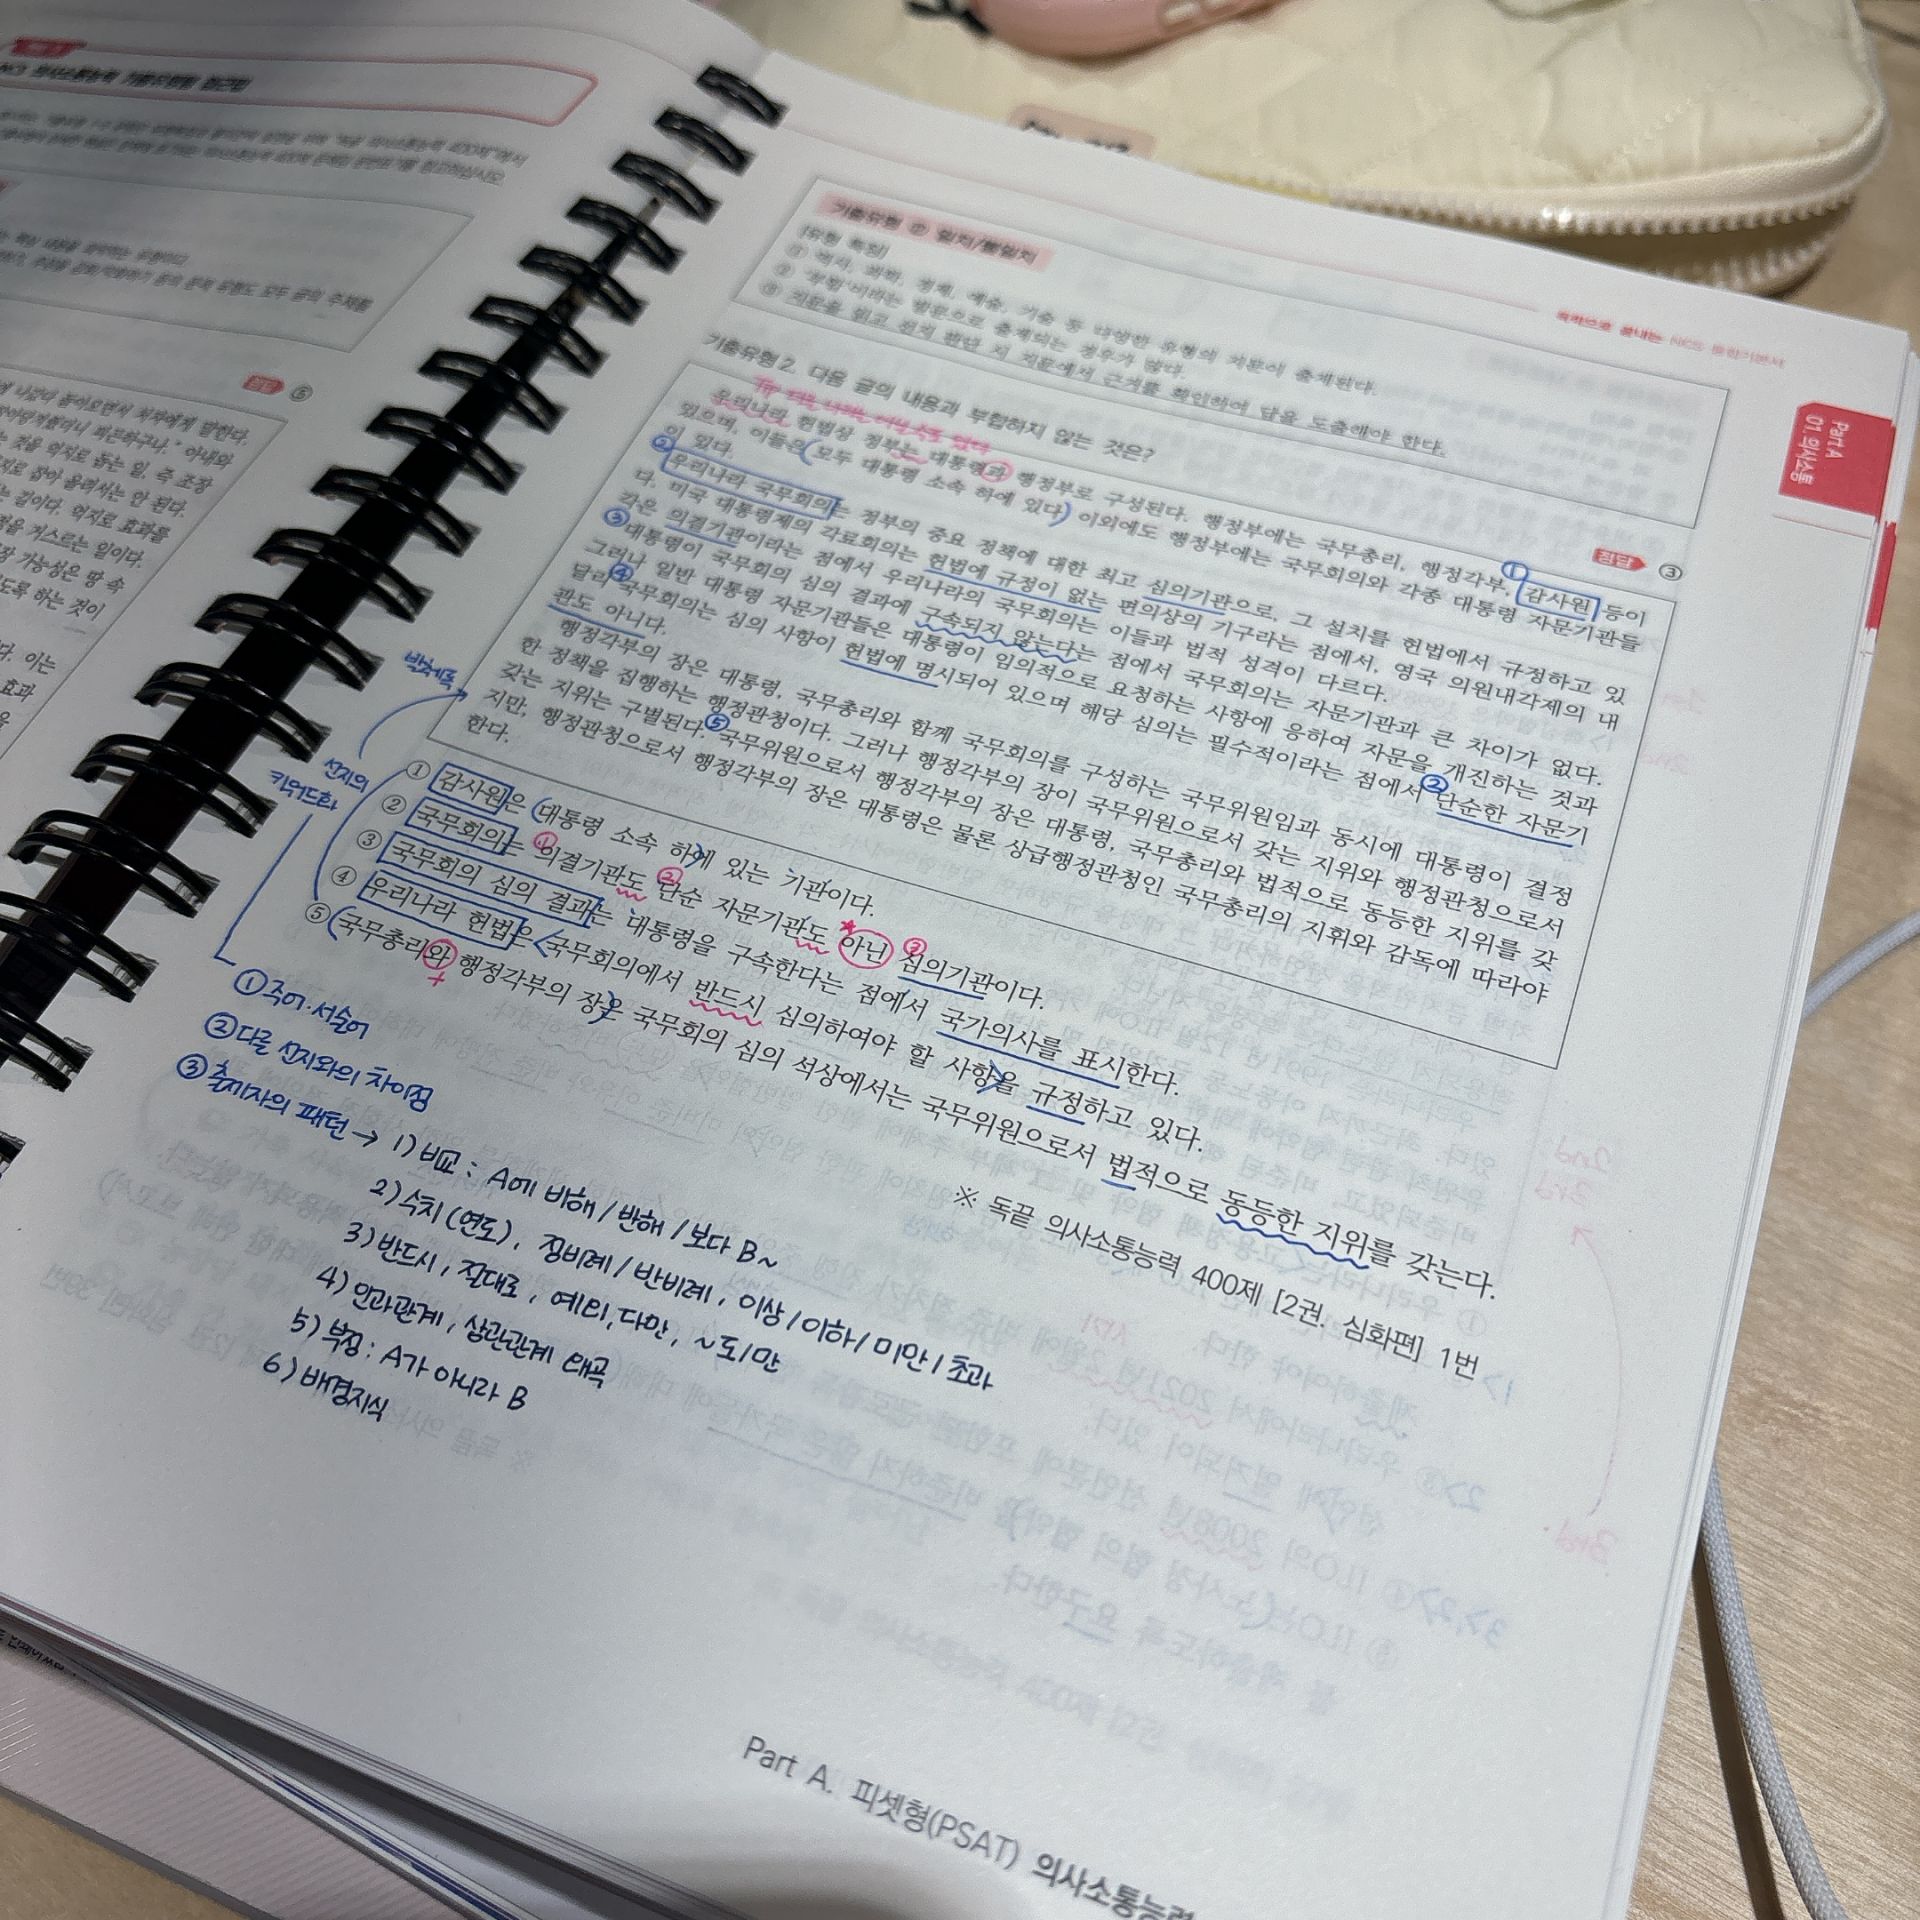 정답 ⑤
나섰다 돌아오면서 처자에게 말한다.
것을 억지로 돕는 일, 즉 조장
지로 잡아 올려서는 안 된다.
는 길이다. 억지로 효과를
을 거스르는 일이다.
장 가능성은 땅 속
도록 하는 것이
다. 이는
효과
을
독학으로 끝내는 NCS 통합기본서
Part A
01. 의사소통
기출유형 ② 일치/불일치
[유형 특징]
① 역사, 과학, 경제, 예술, 기술 등 다양한 유형의 지문이 출제된다.
② '부합'이라는 발문으로 출제되는 경우가 많다.
③ 지문을 읽고 선지 판단 시 지문에서 근거를 확인하여 답을 도출해야 한다.
기출유형2. 다음 글의 내용과 부합하지 않는 것은?
정답 ③
우리나라 헌법상 정부는 대통령과 행정부로 구성된다. 행정부에는 국무총리, 행정각부, ① 감사원 등이
있으며, 이들은 모두 대통령 소속 하에 있다. 이외에도 행정부에는 국무회의와 각종 대통령 자문기관들
이 있다.
② 우리나라 국무회의는 정부의 중요 정책에 대한 최고 심의기관으로, 그 설치를 헌법에서 규정하고 있
다. 미국 대통령제의 각료회의는 헌법에 규정이 없는 편의상의 기구라는 점에서, 영국 의원내각제의 내
각은 의결기관이라는 점에서 우리나라의 국무회의는 이들과 법적 성격이 다르다.
③ 대통령이 국무회의 심의 결과에 구속되지 않는다는 점에서 국무회의는 자문기관과 큰 차이가 없다.
그러나 일반 대통령 자문기관들은 대통령이 임의적으로 요청하는 사항에 응하여 자문을 개진하는 것과
달리 ④ 국무회의는 심의 사항이 헌법에 명시되어 있으며 해당 심의는 필수적이라는 점에서 ② 단순한 자문기
관도 아니다.
행정각부의 장은 대통령, 국무총리와 함께 국무회의를 구성하는 국무위원임과 동시에 대통령이 결정
한 정책을 집행하는 행정관청이다. 그러나 행정각부의 장이 국무위원으로서 갖는 지위와 행정관청으로서
갖는 지위는 구별된다. ⑤ 국무위원으로서 행정각부의 장은 대통령, 국무총리와 법적으로 동등한 지위를 갖
지만, 행정관청으로서 행정각부의 장은 대통령은 물론 상급행정관청인 국무총리의 지휘와 감독에 따라야
한다.
① 감사원은 대통령 소속 하에 있는 기관이다.
② 국무회의는 의결기관도 단순 자문기관도 아닌 심의기관이다.
③ 국무회의 심의 결과는 대통령을 구속한다는 점에서 국가의사를 표시한다.
④ 우리나라 헌법은 국무회의에서 반드시 심의하여야 할 사항을 규정하고 있다.
⑤ 국무총리와 행정각부의 장은 국무회의 심의 석상에서는 국무위원으로서 법적으로 동등한 지위를 갖는다.
※ 독끝 의사소통능력 400제 [2권. 심화편] 1번
선지의
키워드화
① 주어·서술어
② 다른 선지와의 차이점
③ 출제자의 패턴 → 1) 비교 : A에 비해 / 반해 / 보다 B~
2) 수치(연도), 정비례 / 반비례, 이상 / 이하 / 미만 / 초과
3) 반드시, 절대로, 예외, 다만, ~도/만
4) 인과관계, 상관관계 왜곡
5) 부정 : A가 아니라 B
6) 배경지식
Part A. 피셋형(PSAT) 의사소통능력